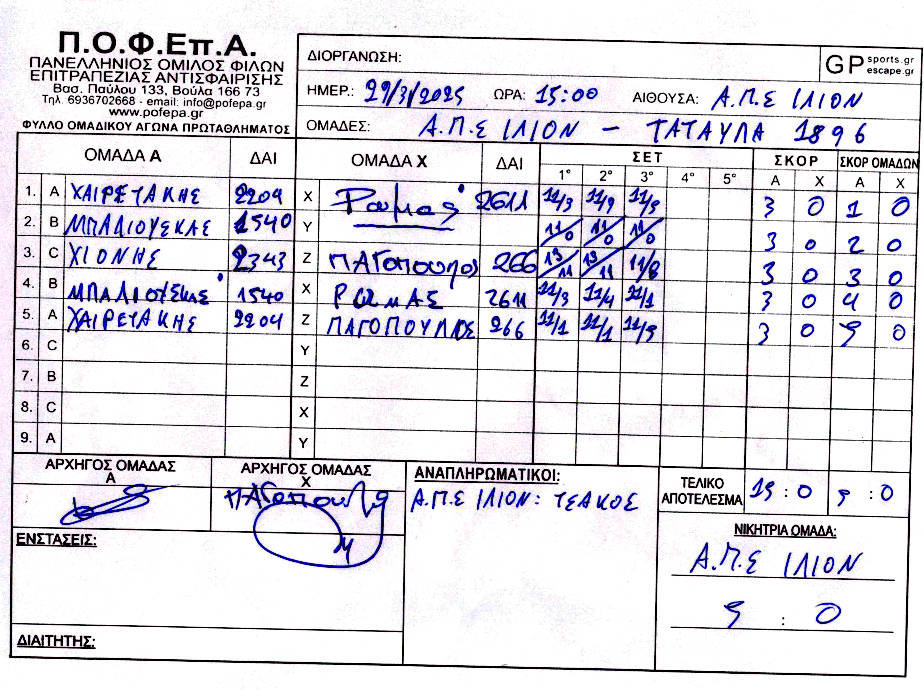 Π.Ο.Φ.Επ.Α.
ΠΑΝΕΛΛΗΝΙΟΣ ΟΜΙΛΟΣ ΦΙΛΩΝ
ΕΠΙΤΡΑΠΕΖΙΑΣ ΑΝΤΙΣΦΑΙΡΙΣΗΣ
Βασ. Παύλου 133, Βούλα 166 73
Τηλ. 6936702668 - email: info@pofepa.gr
www.pofepa.gr
ΦΥΛΛΟ ΟΜΑΔΙΚΟΥ ΑΓΩΝΑ ΠΡΩΤΑΘΛΗΜΑΤΟΣ
ΔΙΟΡΓΑΝΩΣΗ:
GP sports.gr escape.gr
ΗΜΕΡ.: 29/3/2025 ΩΡΑ: 15:00 ΑΙΘΟΥΣΑ: Α.Π.Σ ΙΛΙΟΝ
ΟΜΑΔΕΣ: Α.Π.Σ ΙΛΙΟΝ - ΤΑΤΑΥΛΑ 1896
ΟΜΑΔΑ Α ΔΑΙ ΟΜΑΔΑ Χ ΔΑΙ ΣΕΤ ΣΚΟΡ ΣΚΟΡ ΟΜΑΔΩΝ
1° 2° 3° 4° 5° Α Χ Α Χ
1. A ΧΑΙΡΕΤΑΚΗΣ 2204 X Ρωμας 2611 11/3 11/9 11/5 3 0 1 0
2. B ΜΠΑΛΙΟΥΣΚΑΣ 1540 Y 11/0 11/0 11/0 3 0 2 0
3. C ΧΙΟΝΗΣ 2343 Z ΠΑΓοπουλος 266 13/11 13/11 11/8 3 0 3 0
4. B ΜΠΑΛΙΟΥΣΚΑΣ 1540 X ΡΩΜΑΣ 2611 11/3 11/4 11/1 3 0 4 0
5. A ΧΑΙΡΕΤΑΚΗΣ 2204 Z ΠΑΓΟΠΟΥΛΟΣ 266 11/1 11/1 11/5 3 0 5 0
6. C Y
7. B Z
8. C X
9. A Y
ΑΡΧΗΓΟΣ ΟΜΑΔΑΣ Α
ΑΡΧΗΓΟΣ ΟΜΑΔΑΣ Χ
ΑΝΑΠΛΗΡΩΜΑΤΙΚΟΙ:
Α.Π.Σ ΙΛΙΟΝ: ΤΣΑΚΟΣ
ΤΕΛΙΚΟ ΑΠΟΤΕΛΕΣΜΑ 15 : 0 5 : 0
ΝΙΚΗΤΡΙΑ ΟΜΑΔΑ:
Α.Π.Σ ΙΛΙΟΝ
5 : 0
ΕΝΣΤΑΣΕΙΣ:
ΔΙΑΙΤΗΤΗΣ: